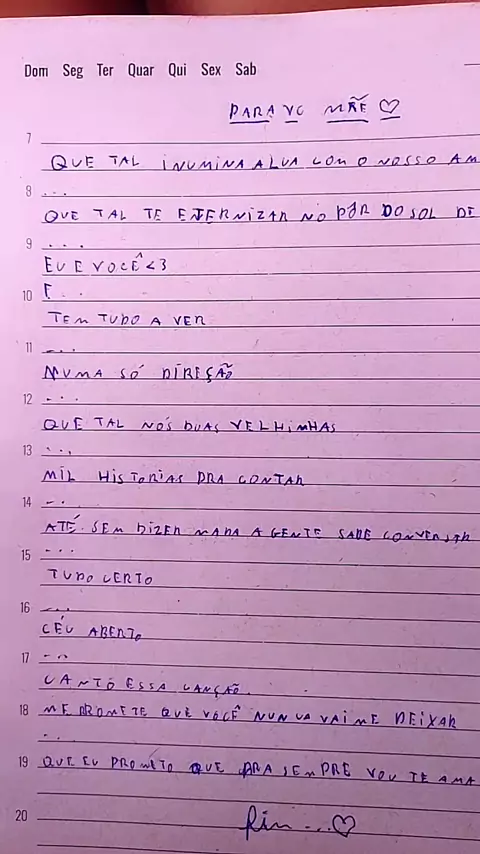 Dom Seg Ter Quar Qui Sex Sab
PARA VC MÃE ♡
7
QUE TAL INUMINA A LUA COM O NOSSO AM
8 ...
QUE TAL TE ETERNIZAR NO PÔR DO SOL DE
9 ...
EU E VOCÊ <3
10 E...
TEM TUDO A VER
11 ...
NUMA SÓ DIREÇÃO
12 ...
QUE TAL NÓS DUAS VELHINHAS
13 ...
MIL HISTORIAS PRA CONTAR
14 ...
ATÉ SEM DIZER NADA A GENTE SABE CONVERSAR
15 ...
TUDO CERTO
16 ...
CÉU ABERTO
17 ...
CANTO ESSA CANÇÃO
18 ME PROMETE QUE VOCÊ NUNCA VAI ME DEIXAR
...
19 QUE EU PROMETO QUE PRA SEMPRE VOU TE AMA
20 fim...♡